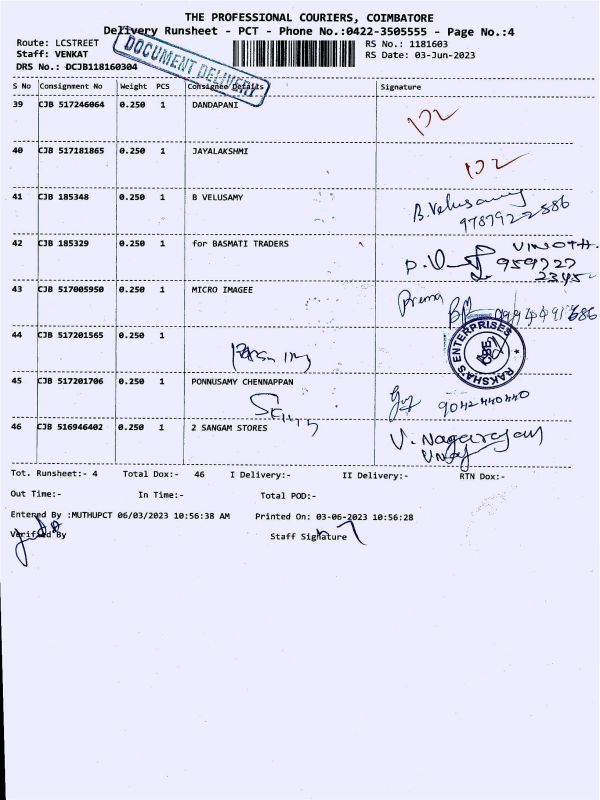 THE PROFESSIONAL COURIERS, COIMBATORE
Delivery Runsheet - PCT - Phone No.:0422-3505555 - Page No.:4
Route: LCSTREET
RS No.: 1181603
Staff: VENKAT
RS Date: 03-Jun-2023
DRS No.: DCJB118160304
DOCUMENT DELIVERY
S No Consignment No Weight PCS Consignee Details Signature
39 CJB 517246064 0.250 1 DANDAPANI
40 CJB 517181865 0.250 1 JAYALAKSHMI
41 CJB 185348 0.250 1 B VELUSAMY
B.Velusamy
42 CJB 185329 0.250 1 for BASMATI TRADERS
VINOTH.
959727
2345
43 CJB 517005950 0.250 1 MICRO IMAGEE
Prema
RAKSHA'S ENTERPRISES
CBE
44 CJB 517201565 0.250 1
45 CJB 517201706 0.250 1 PONNUSAMY CHENNAPPAN
9042440440
46 CJB 516946402 0.250 1 2 SANGAM STORES
V. Nagarajan
Tot. Runsheet:- 4 Total Dox:- 46 I Delivery:- II Delivery:- RTN Dox:-
Out Time:- In Time:- Total POD:-
Entered By :MUTHUPCT 06/03/2023 10:56:38 AM Printed On: 03-06-2023 10:56:28
Verified By Staff Signature